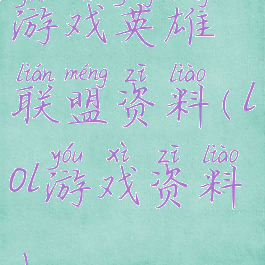 游戏英雄
lián méng zī liào
联盟资料(l
yóu xì zī liào
ol游戏资料